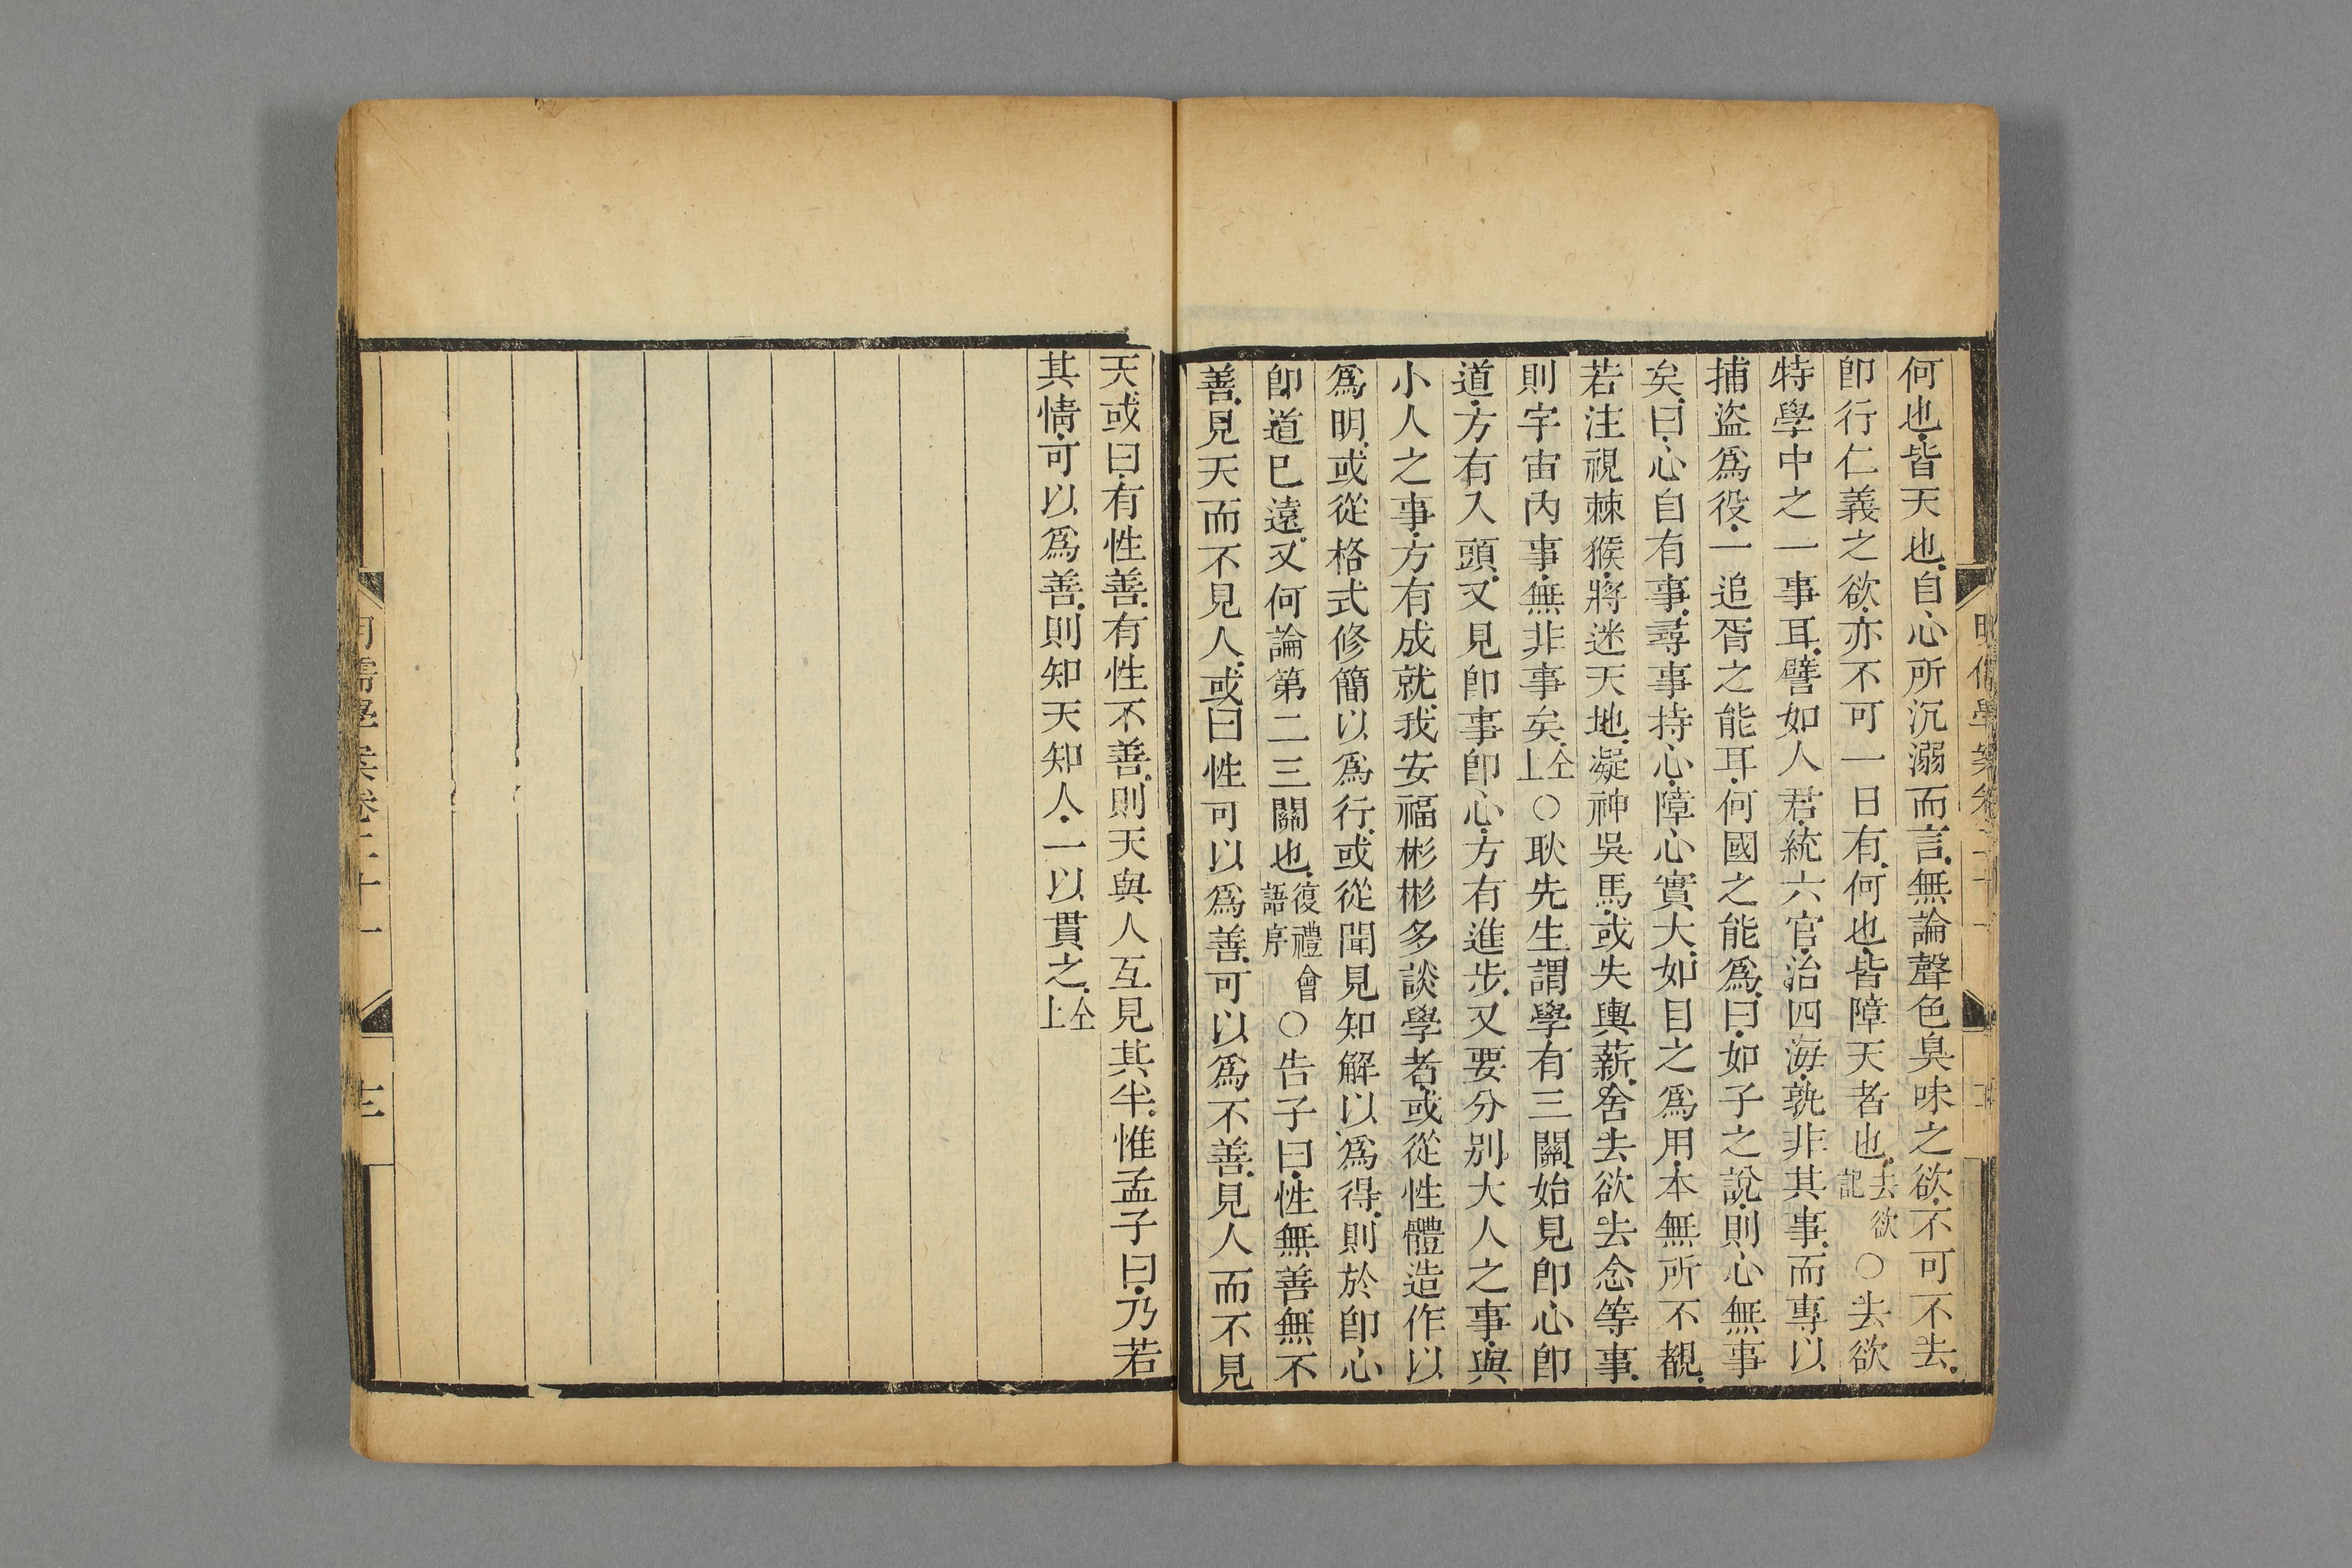 何也皆天也自心所沉溺而言無論聲色臭味之欲不可不去
卽行仁義之欲亦不可一日有何也皆障天者也去欲記○去欲
特學中之一事耳譬如人君統六官治四海孰非其事而專以
捕盜爲役一追胥之能耳何國之能爲曰如子之說則心無事
矣曰心自有事尋事持心障心實大如目之爲用本無所不覩
若注視棘猴將迷天地凝神吳馬或失輿薪舍去欲去念等事
則宇宙內事無非事矣仝上○耿先生謂學有三關始見卽心卽
道方有入頭又見卽事卽心方有進步又要分别大人之事與
小人之事方有成就我安福彬彬多談學者或從性體造作以
爲明或從格式修簡以爲行或從聞見知解以爲得則於卽心
卽道已遠又何論第二三關也復禮會語序○告子曰性無善無不
善見天而不見人或曰性可以爲善可以爲不善見人而不見
天或曰有性善有性不善則天與人互見其半惟孟子曰乃若
其情可以爲善則知天知人一以貫之仝上